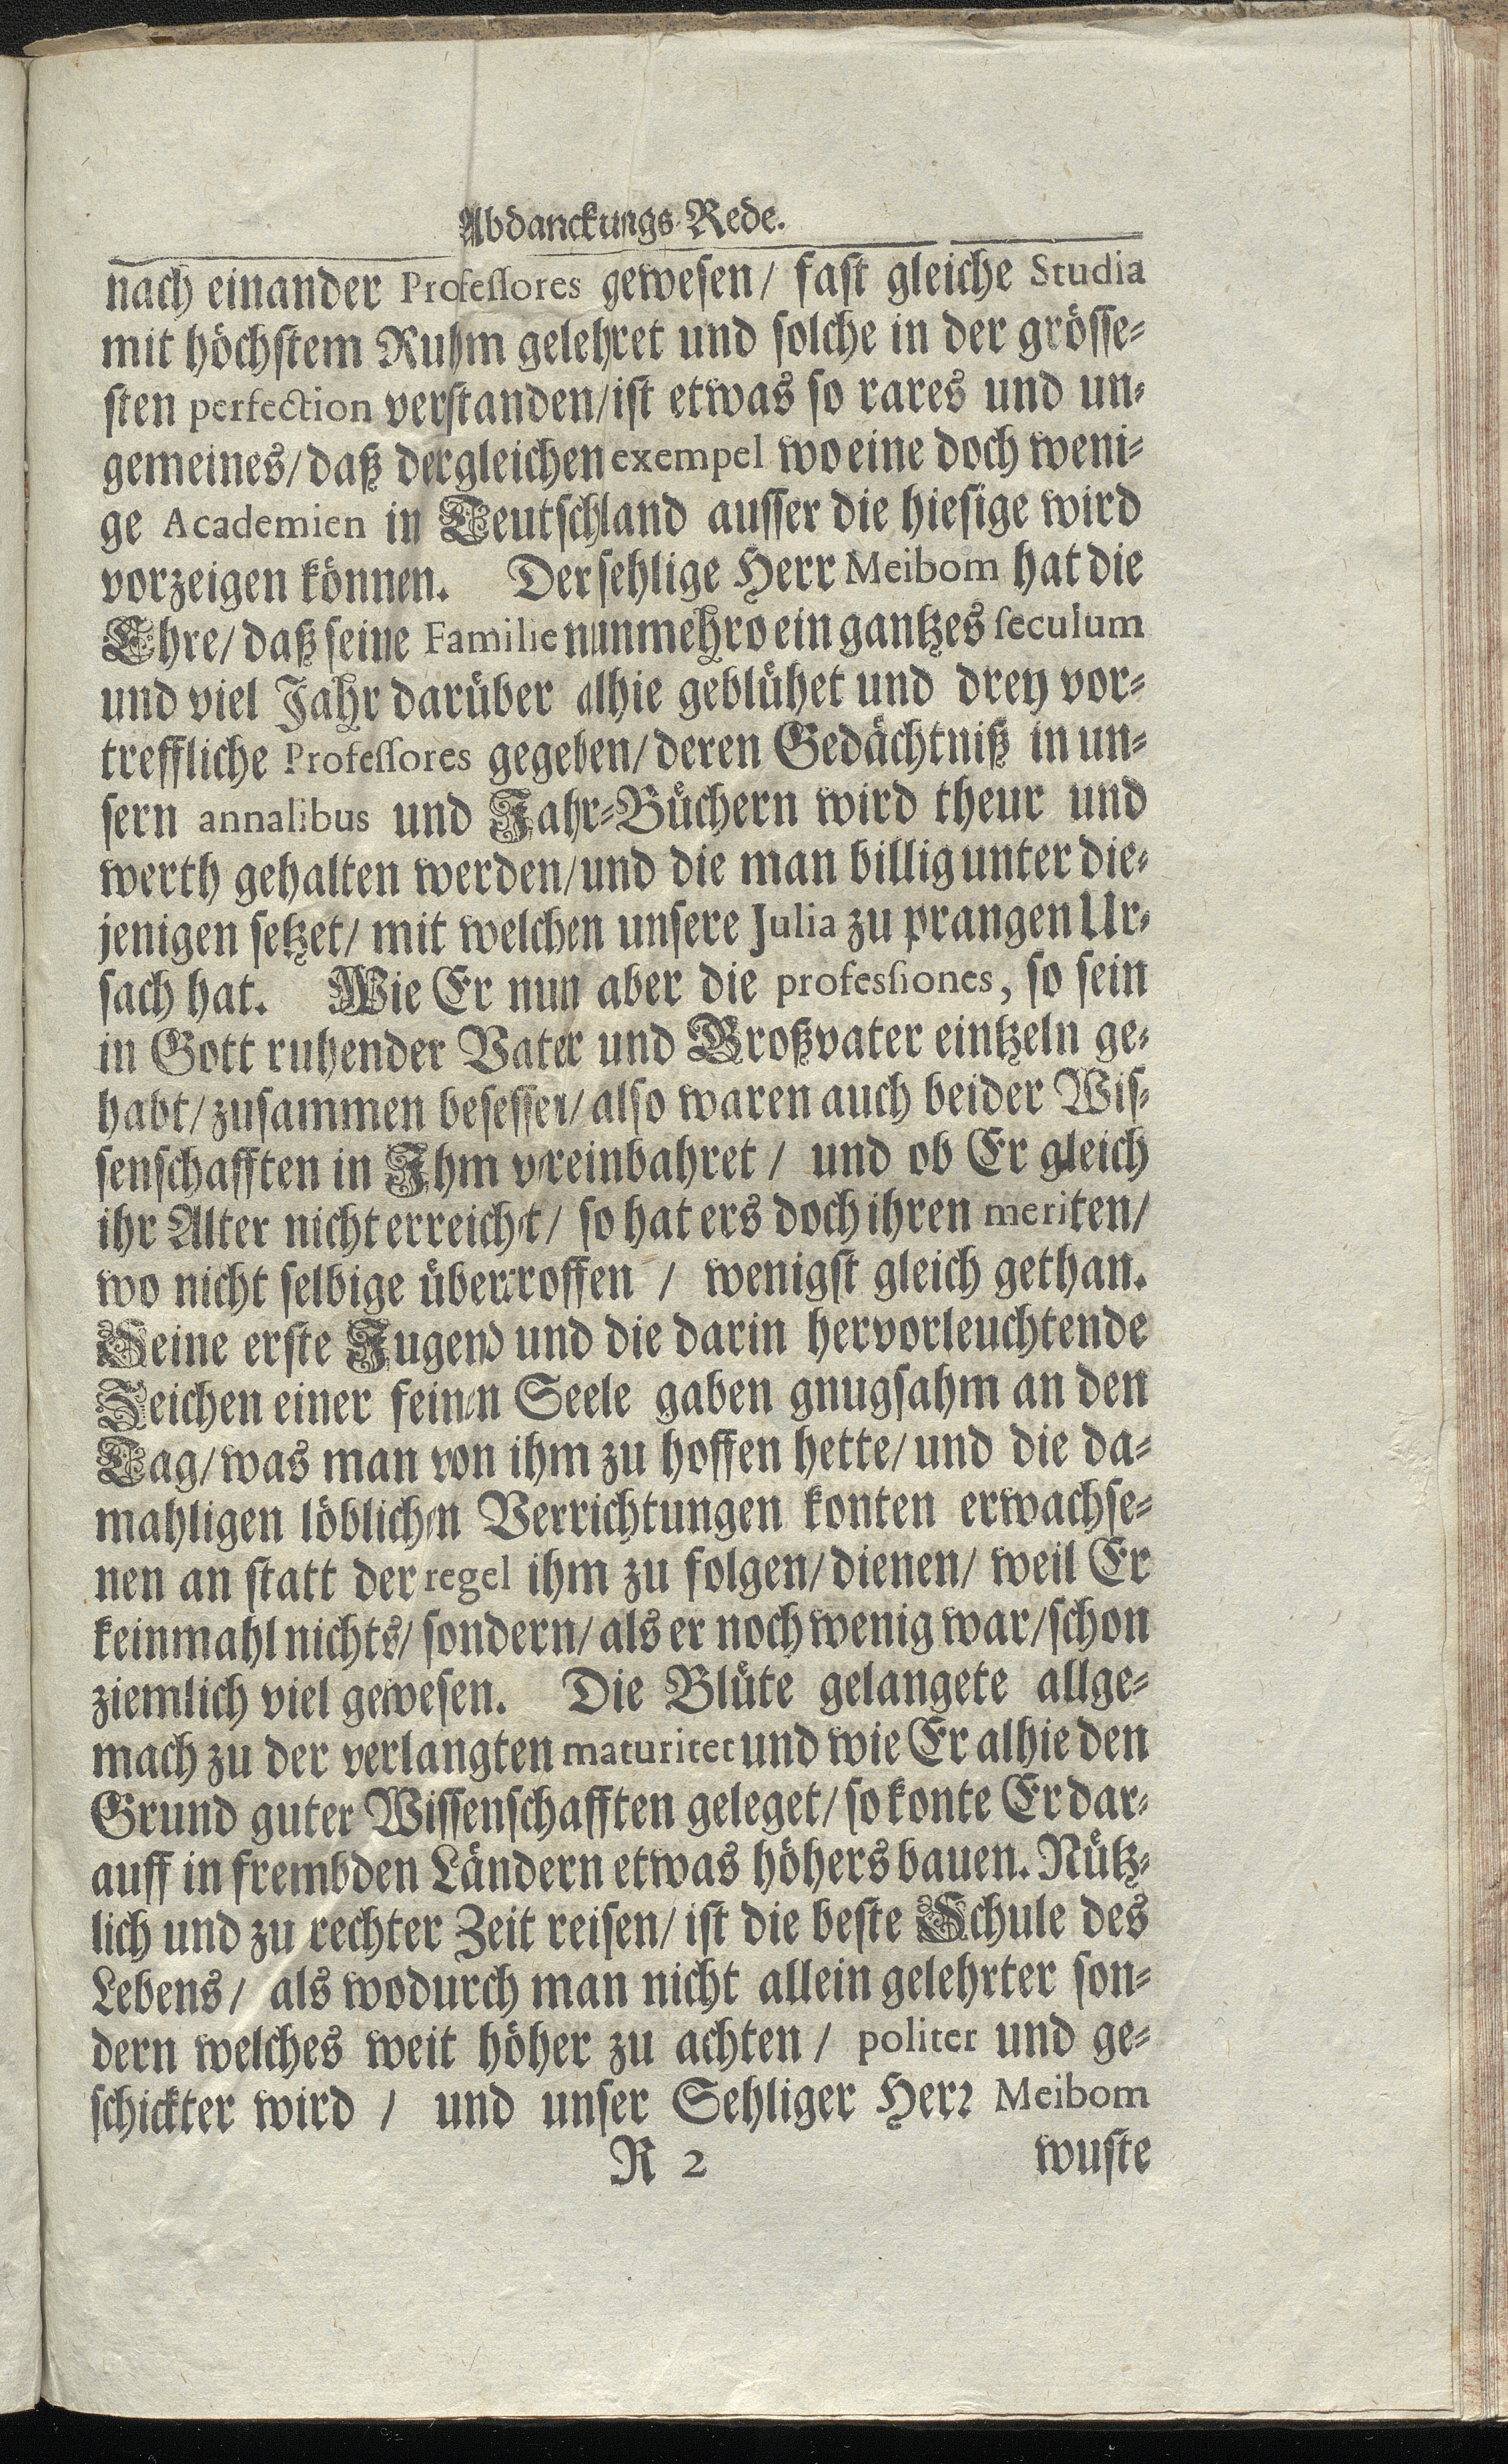 Abdanckungs-Rede.
nach einander Professores gewesen/ fast gleiche Studia
mit höchstem Ruhm gelehret und solche in der grösse-
sten perfection verstanden/ ist etwas so rares und un-
gemeines/ daß dergleichen exempel wo eine doch weni-
ge Academien in Teutschland ausser die hiesige wird
vorzeigen können. Der sehlige Herr Meibom hat die
Ehre/ daß seine Familie nunmehro ein gantzes seculum
und viel Jahr darüber alhie geblühet und drey vor-
treffliche Professores gegeben/ deren Gedächtniß in un-
sern annalibus und Jahr-Büchern wird theur und
werth gehalten werden/ und die man billig unter die-
jenigen setzet/ mit welchen unsere Julia zu prangen Ur-
sach hat. Wie Er nun aber die professiones, so sein
in Gott ruhender Vater und Großvater eintzeln ge-
habt/ zusammen besessen/ also waren auch beider Wis-
senschafften in Ihm vereinbahret / und ob Er gleich
ihr Alter nicht erreichet/ so hat ers doch ihren meriten/
wo nicht selbige übertroffen / wenigst gleich gethan.
Seine erste Jugend und die darin hervorleuchtende
Zeichen einer feinen Seele gaben gnugsahm an den
Tag/ was man von ihm zu hoffen hette/ und die da-
mahligen löblichen Verrichtungen konten erwachse-
nen an statt der regel ihm zu folgen/ dienen/ weil Er
keinmahl nichts/ sondern/ als er noch wenig war/ schon
ziemlich viel gewesen. Die Blüte gelangete allge-
mach zu der verlangten maturitet und wie Er alhie den
Grund guter Wissenschafften geleget/ so konte Er dar-
auff in frembden Ländern etwas höhers bauen. Nütz-
lich und zu rechter Zeit reisen/ ist die beste Schule des
Lebens/ als wodurch man nicht allein gelehrter son-
dern welches weit höher zu achten / politer und ge-
schickter wird / und unser Sehliger Herr Meibom
R 2 wuste